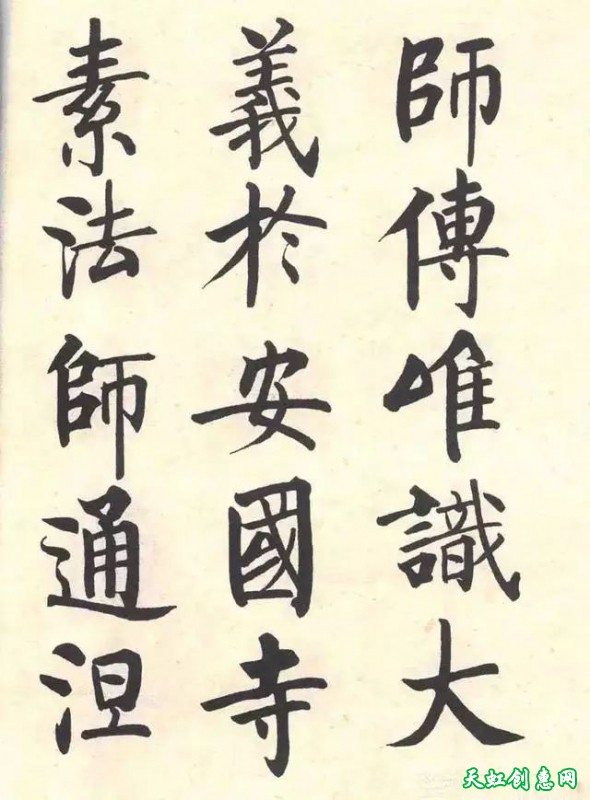 師傳唯識大
義於安國寺
素法師通涅
天虹创意网